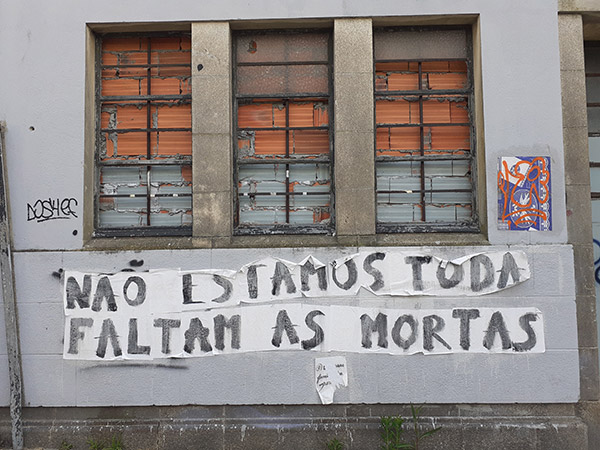 NÃO ESTAMOS TODA
FALTAM AS MORTAS